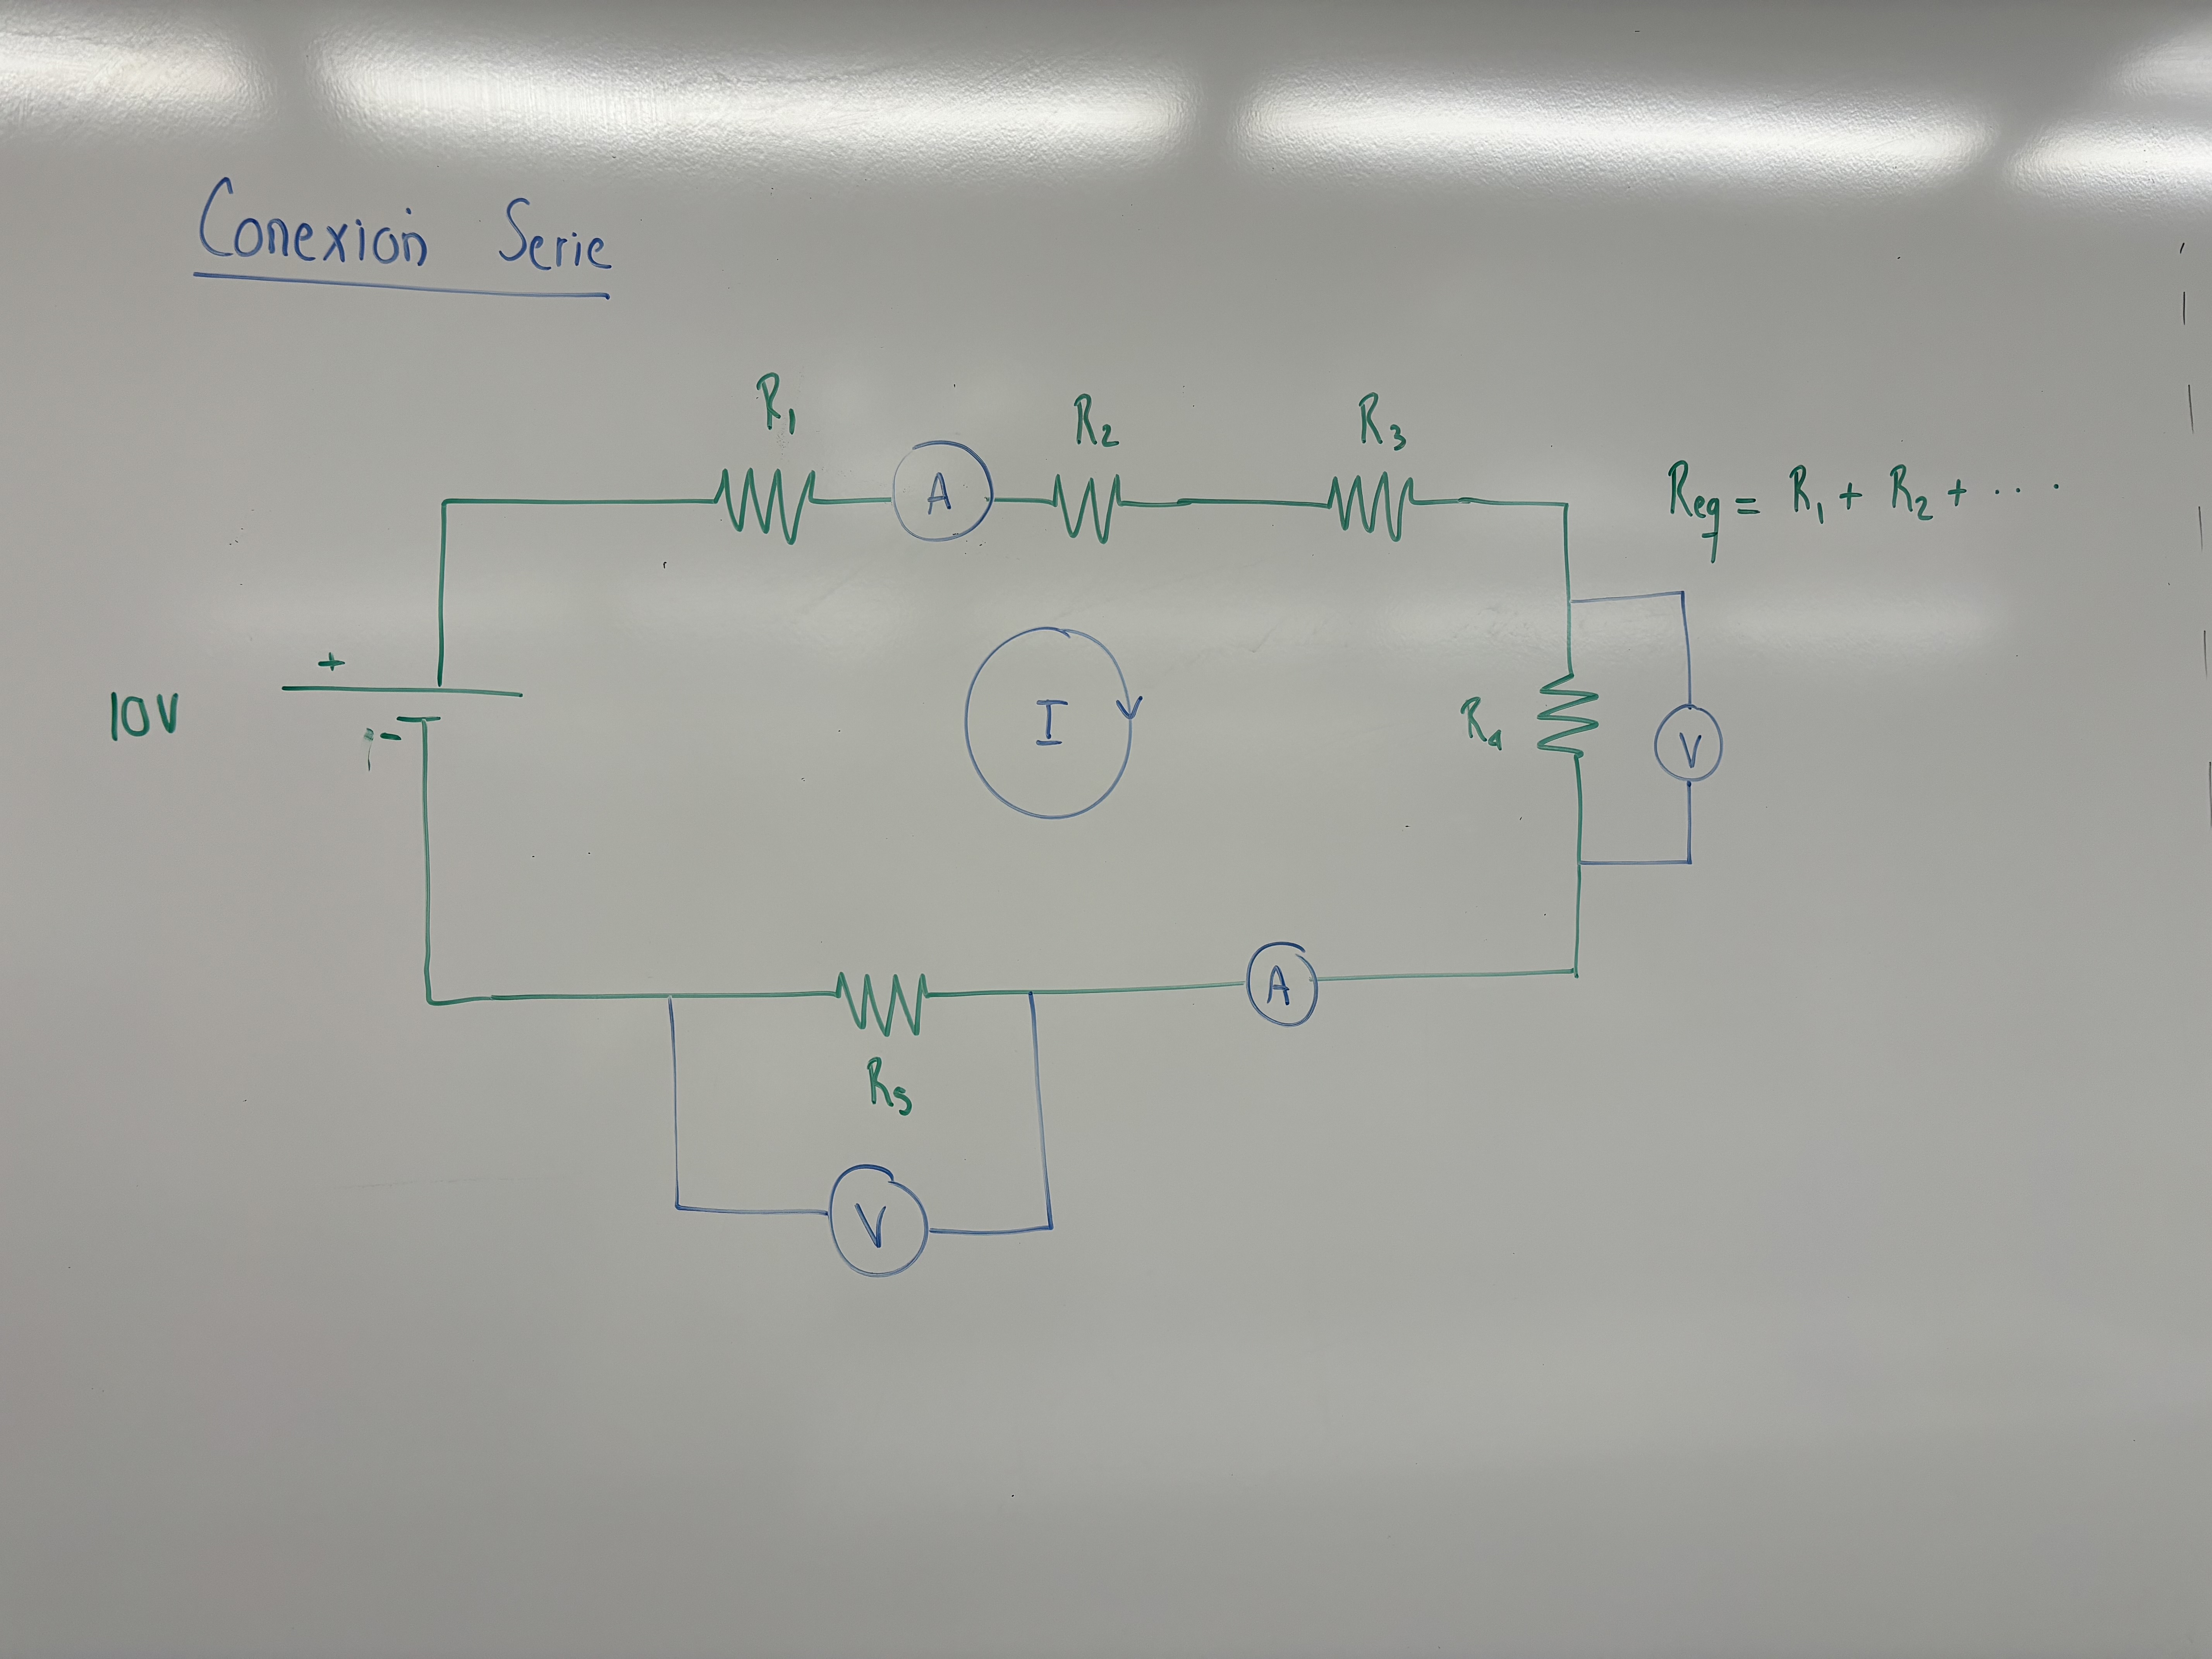 Conexión Serie
R1
R2
R3
A
Req = R1 + R2 + ....
+
10V
-
I
R4
V
A
R5
V